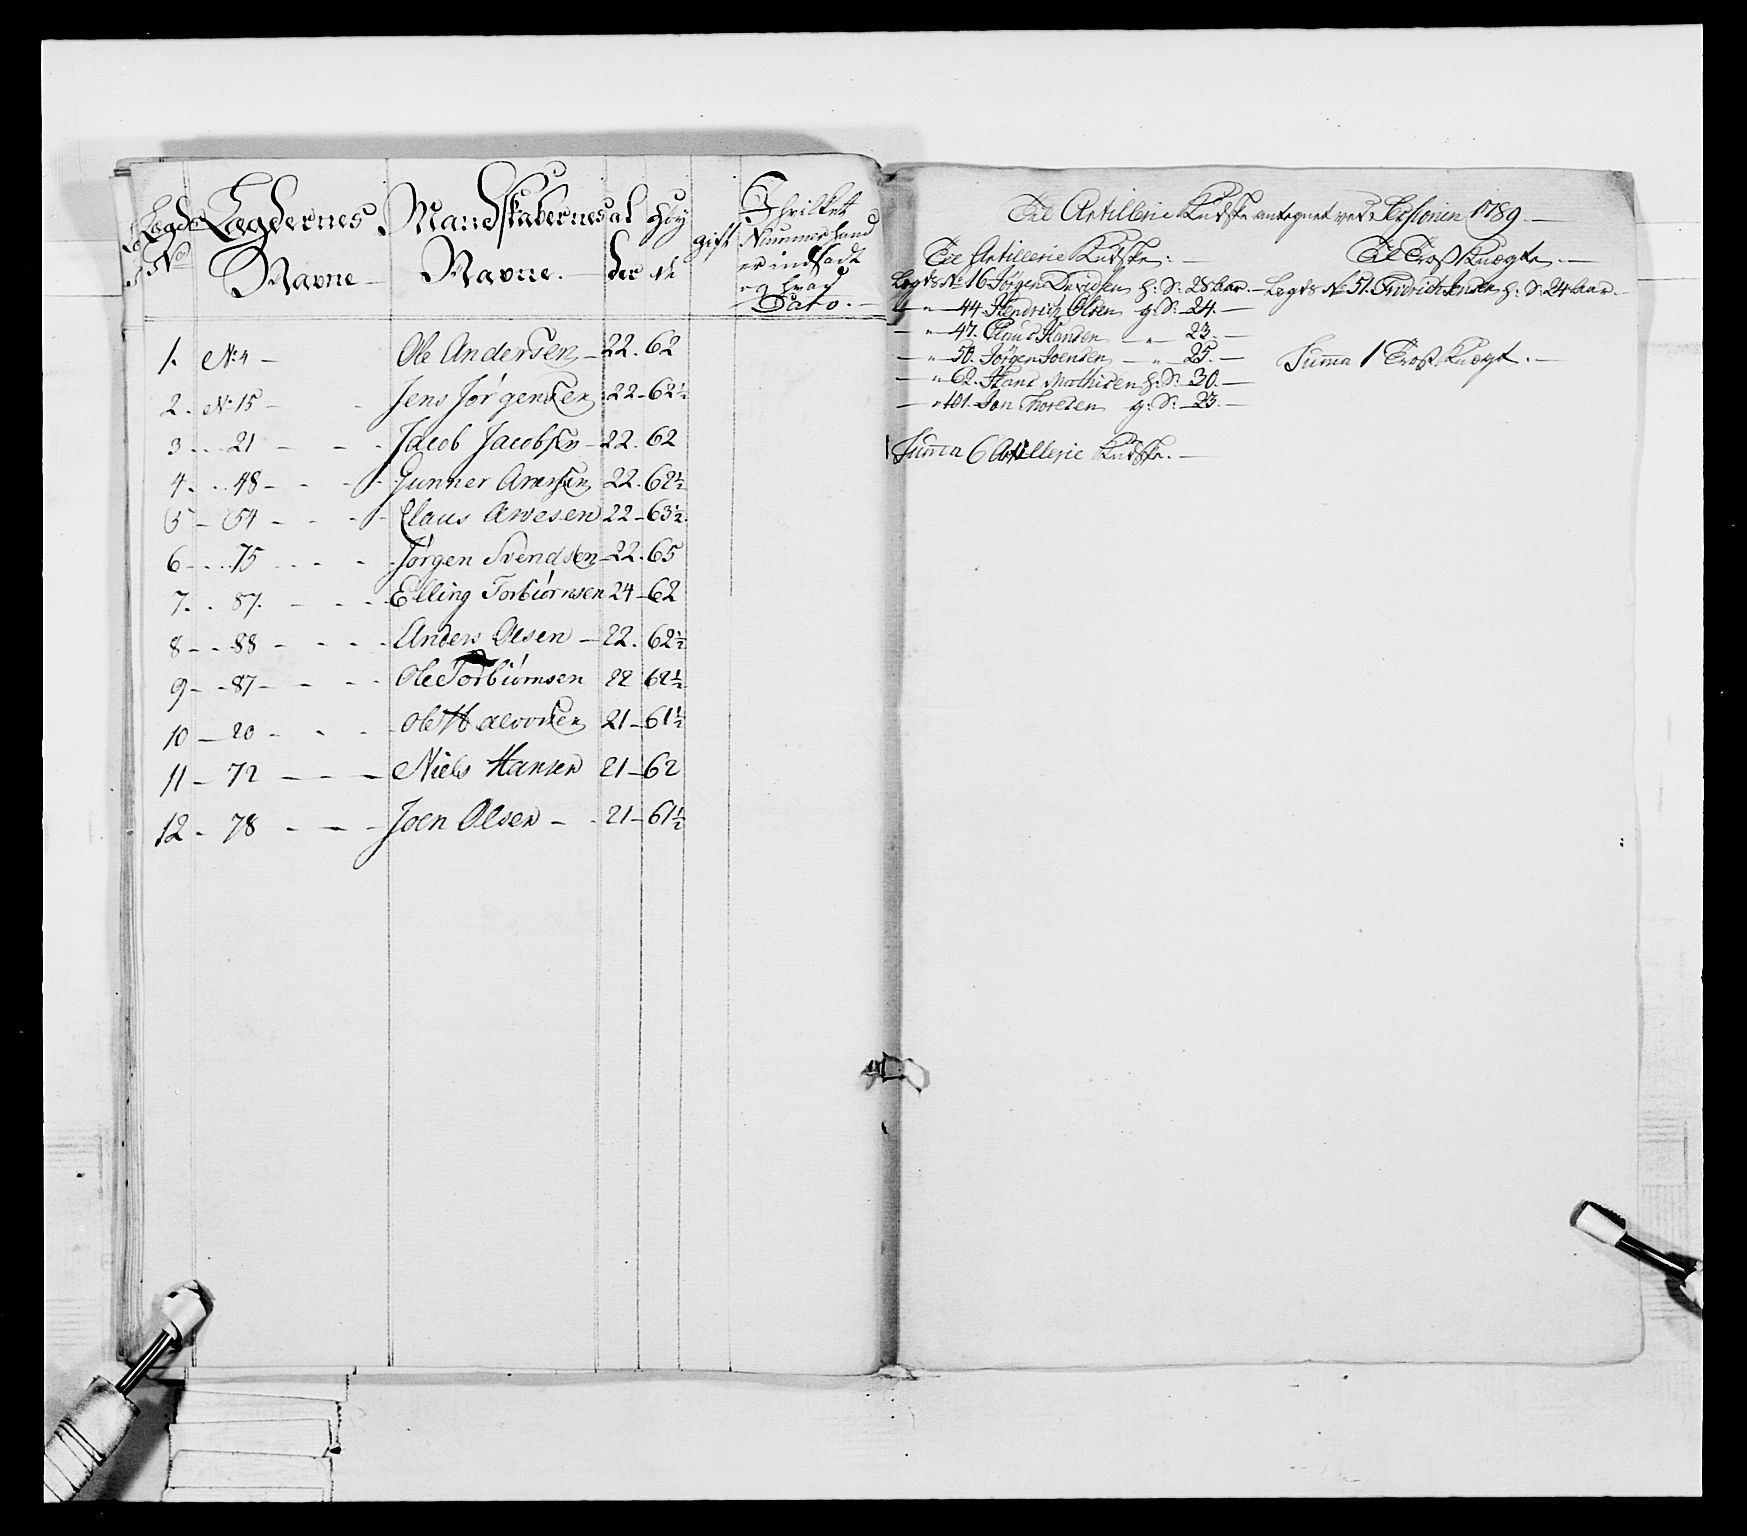 Lægds Lægdernes Mandskabernes al Høy gift I hvilket
No Navne Navne. der de Nummer hand
er indsadt
og hvad
Dato.
1. No: 4 Ole Andersen 22. 62
2. No: 15 Jens Jørgensen 22 62½
3 21 Jacob Jacobsen 22. 62
4. 48 Gunner Anersen 22. 62½
5 54 Claus Arvesen 22 63½
6 75 Jørgen Svendsen 22. 65
7. 87. Elling Torbiørnsen 24 62
8 88 Anders Olsen 22. 62½
9 87 Ole Torbiørnsen 22 62½
10 20 Ole Halvorsen 21 61½
11 72 Niels Hansen 21 62
12 78 Joen Olsen 21 61½
Til Artillerie Kudske antegnet ved Sessionen 1789.
Til Artillerie Kudske:
Lægds No 16 Jørgen Davidsen h: S: 28 Aar.
" 44. Hendrich Olsen g: S: 24.
" 47. Claus Hansen " 23.
" 50. Jørgen Joensen " 25.
" 62. Hans Mathisen h: S: 30.
" 101. Jon Thoresen g: S: 23.
Summa 6 Artillerie Kudske.
Til Troskknægte.
Lægds No 51. Fridrich Jensen h: S: 24 Aar.
Summa 1 Trosknægt.